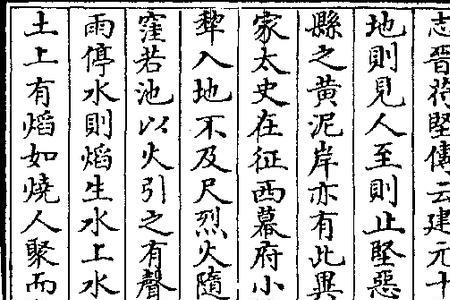 志晉苻堅傳云建元十
地則見人至則止堅惡
縣之黃泥岸亦有此異
家太史在征西幕府小
犂入地不及尺烈火隨
窪若池以火引之有聲
雨停水則熖生水上水
土上有熖如燒人聚而